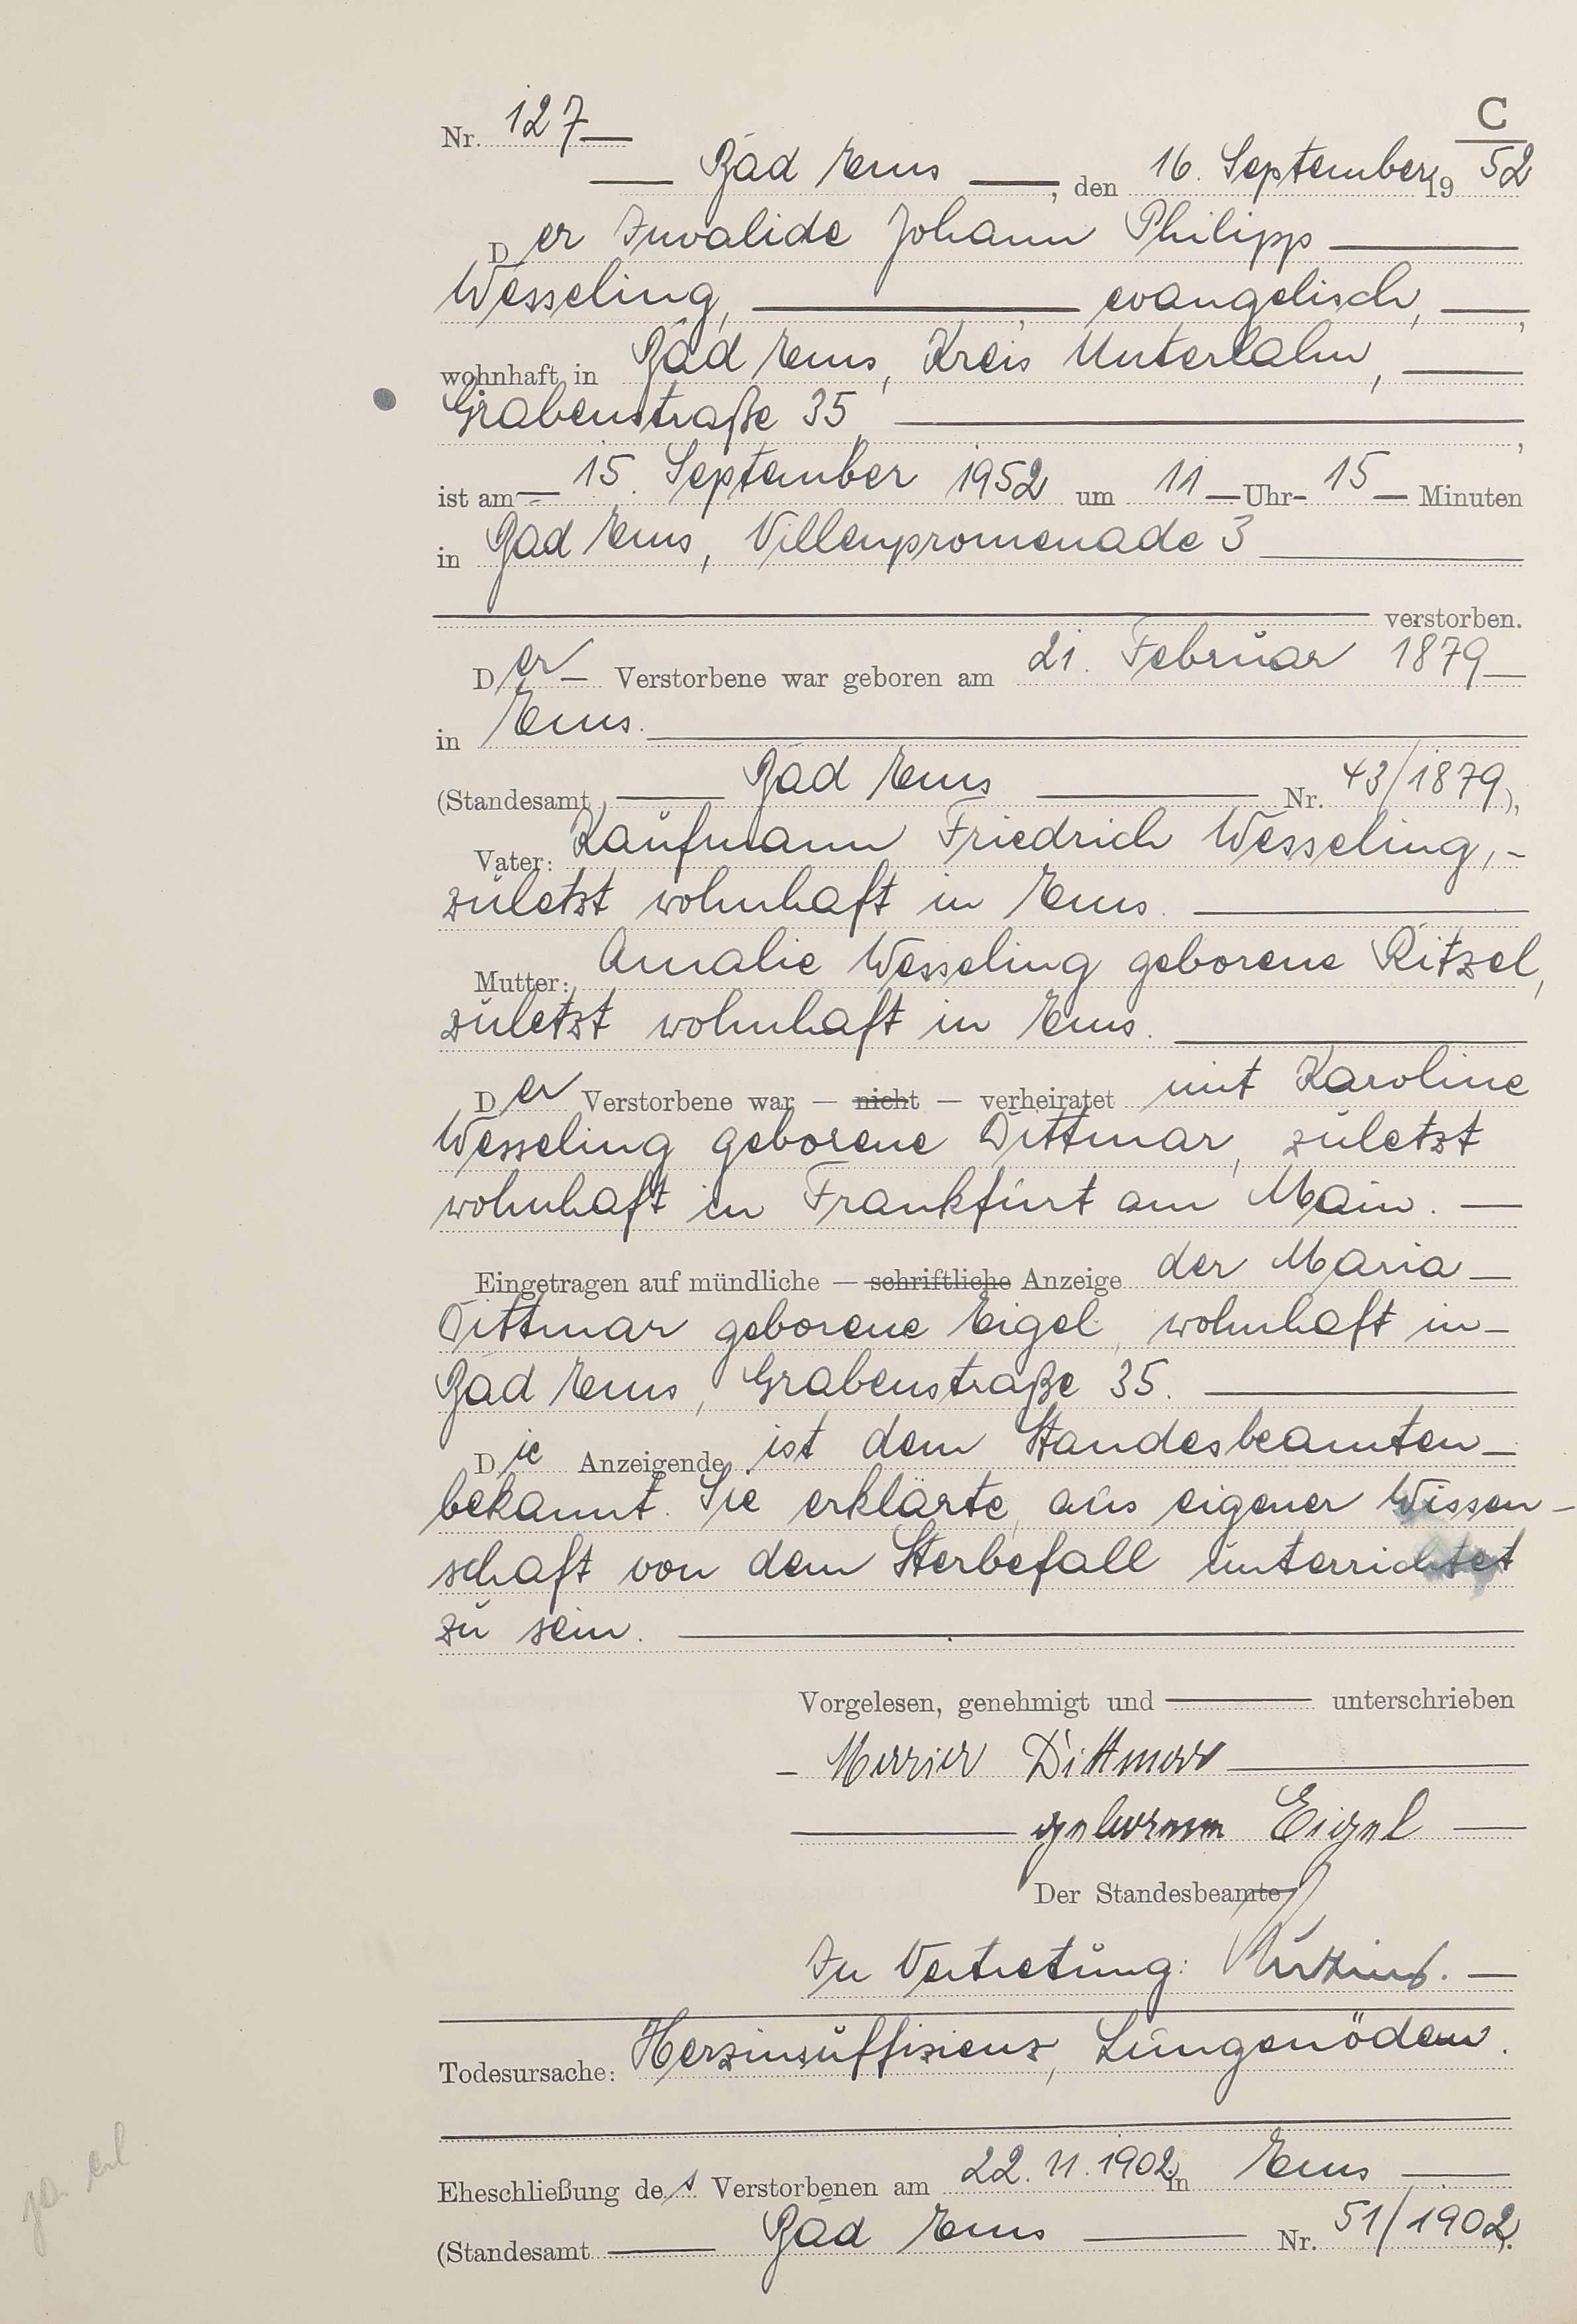 C
Nr. 127
Bad Ems, den 16. September 1952
Der Invalide Johann Philipp
Wesseling, evangelisch,
wohnhaft in Bad Ems, Kreis Unterlahn,
Grabenstraße 35,
ist am 15. September 1952 um 11 Uhr 15 Minuten
in Bad Ems, Villenpromenade 3
verstorben.
Der Verstorbene war geboren am 21. Februar 1879
in Ems.
(Standesamt Bad Ems Nr. 43/1879),
Vater: Kaufmann Friedrich Wesseling,
zuletzt wohnhaft in Ems.
Mutter: Amalie Wesseling geborene Ritzel,
zuletzt wohnhaft in Ems.
Der Verstorbene war — nicht — verheiratet mit Karoline
Wesseling geborene Dittmar, zuletzt
wohnhaft in Frankfurt am Main. —
Eingetragen auf mündliche — schriftliche Anzeige der Maria
Dittmar geborene Eigel, wohnhaft in
Bad Ems, Grabenstraße 35.
Die Anzeigende ist dem Standesbeamten
bekannt. Sie erklärte, aus eigener Wissen-
schaft von dem Sterbefall unterrichtet
zu sein.
Vorgelesen, genehmigt und unterschrieben
Maria Dittmar
geborene Eigel
Der Standesbeamte
In Vertretung:
Todesursache: Herzinsuffizienz, Lungenödem.
Eheschließung des Verstorbenen am 22.11.1902 in Ems
(Standesamt Bad Ems Nr. 51/1902).